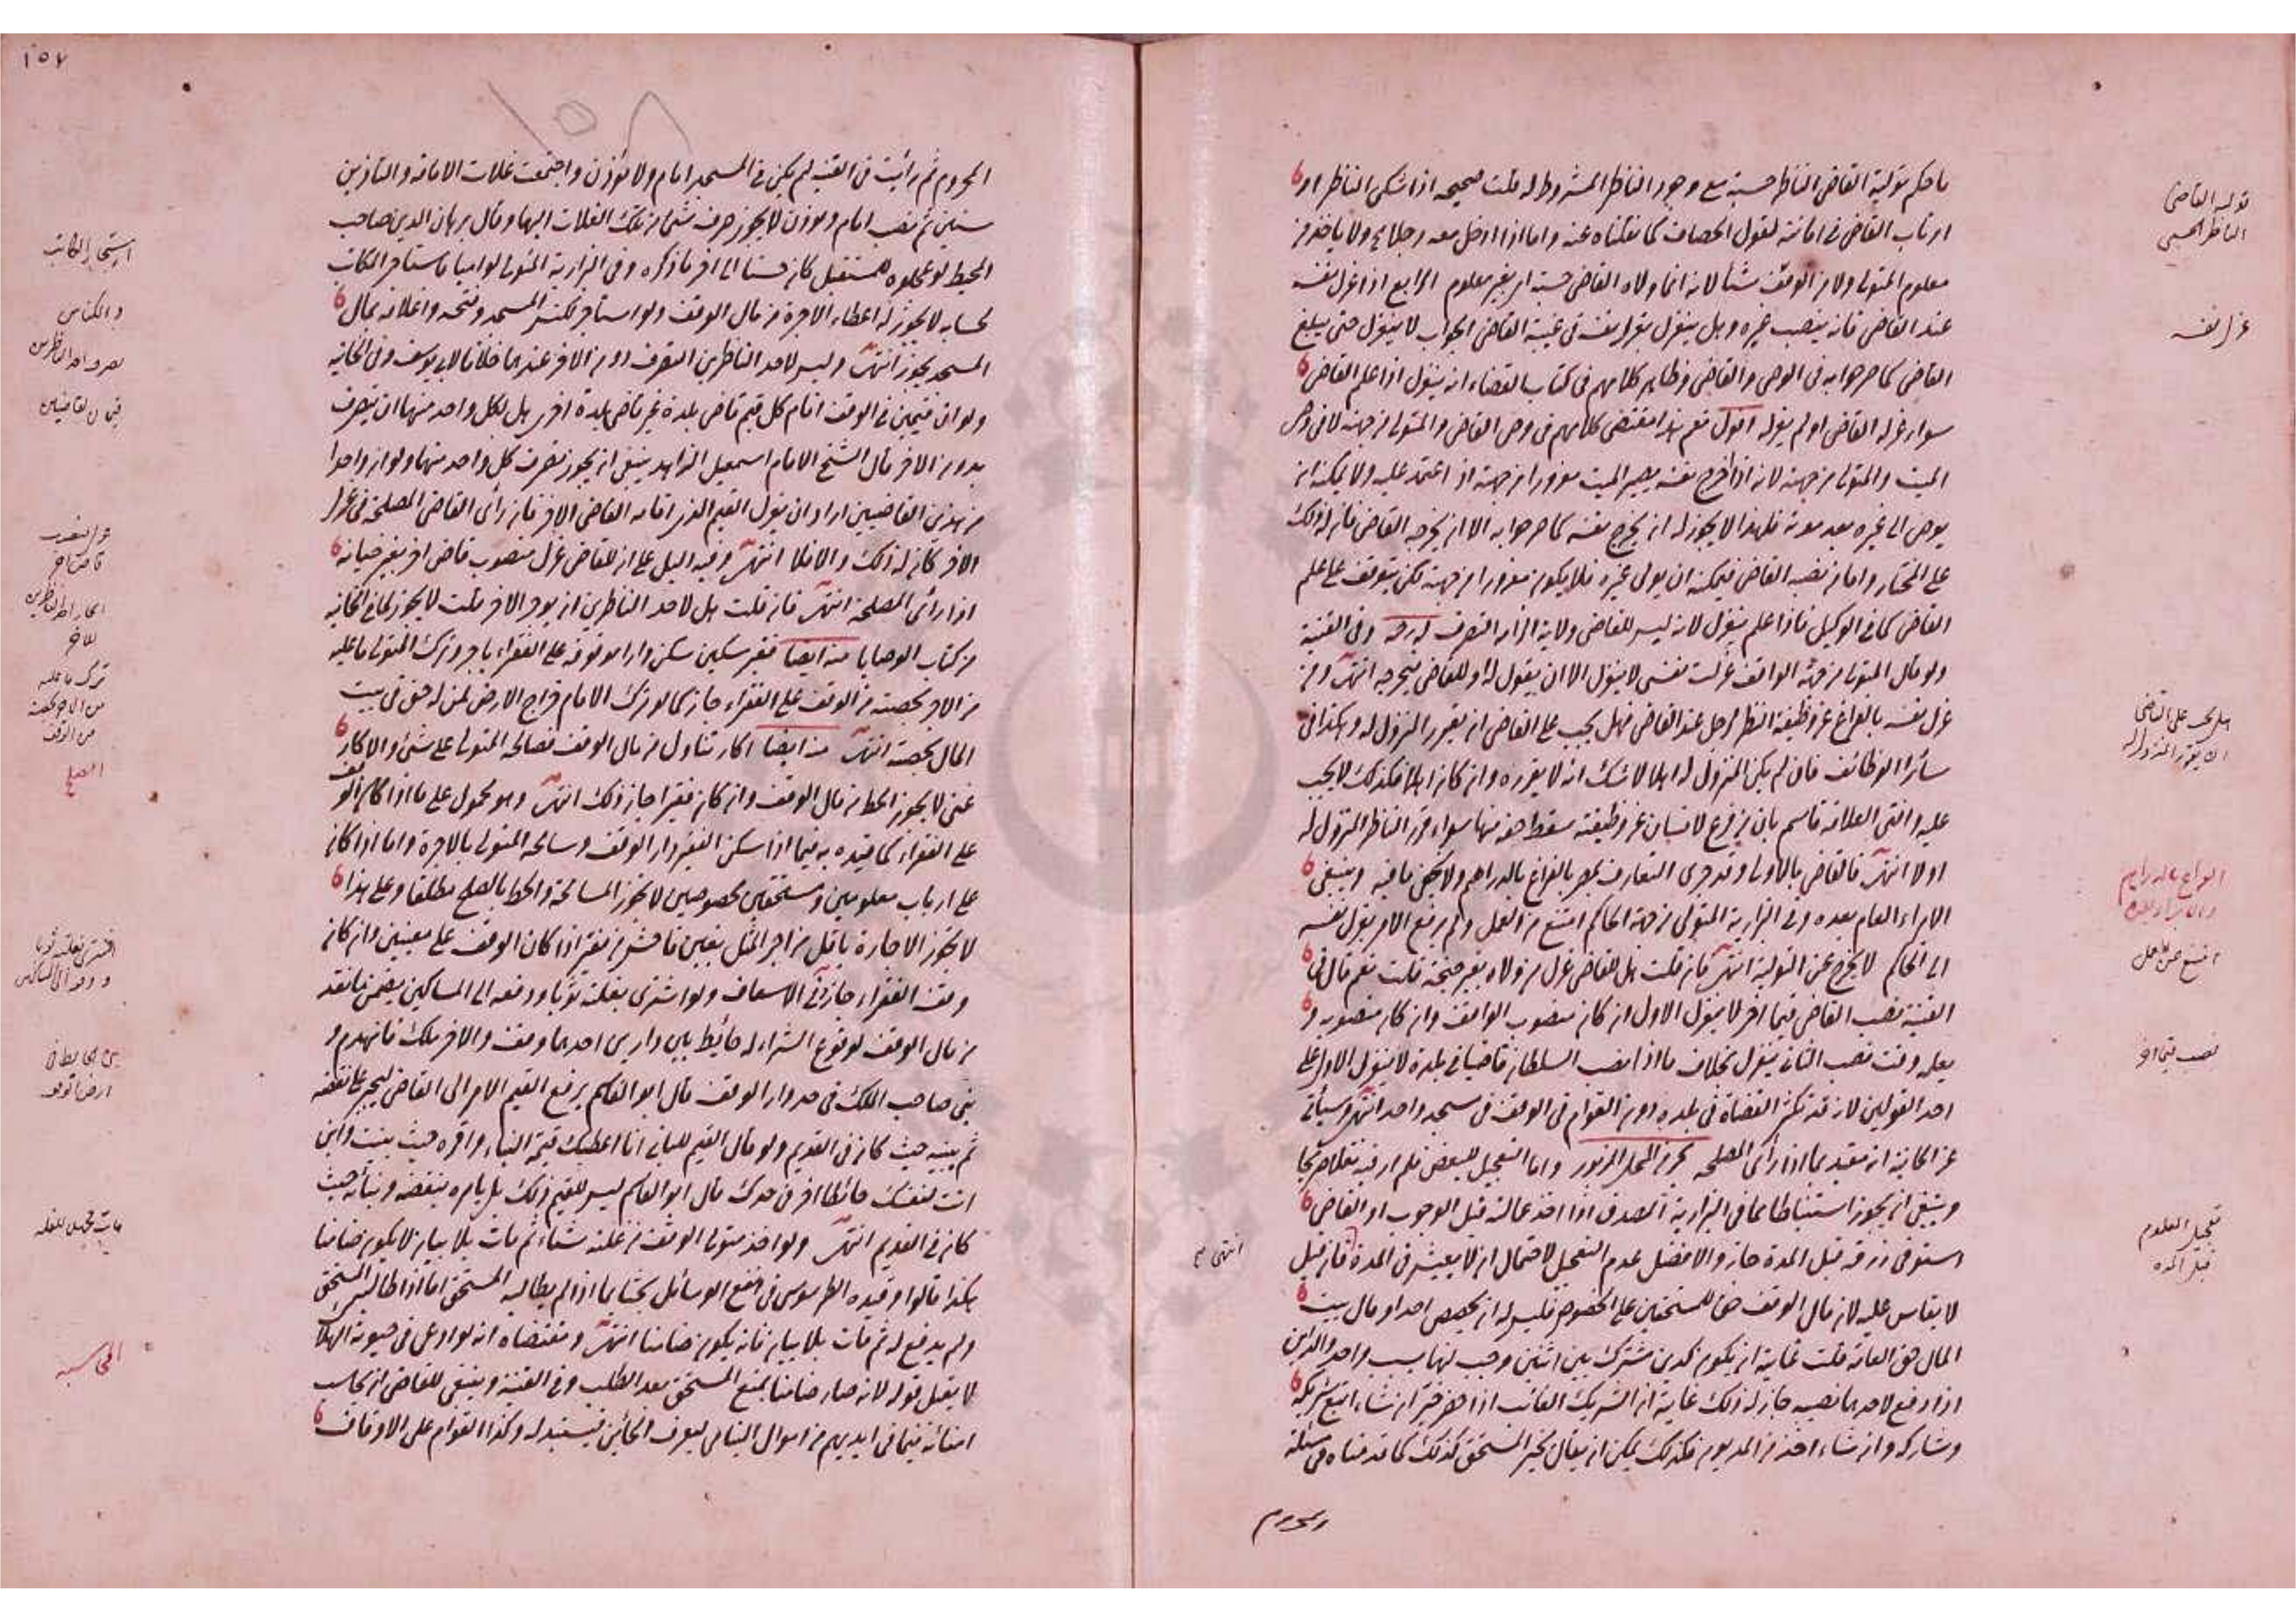 ما حكم تولية القاضي الناظر حسبة مع وجود الناظر المشروط له قلت صحيحة اذا شكى الناظر او
ارتاب القاضي في امانته لقول الخصاف كما نقلناه عنه واما اذا ادخل معه رجلا ولا ياخذ من
معلوم المتولي ولا من الوقف شيأ لانه انما ولاه القاضي حسبة اي بغير معلوم الرابع اذا عزل نفسه
عند القاضي فانه ينصب غيره وهل ينعزل بعزل نفسه في غيبة القاضي الجواب لا ينعزل حتى يبلغ
القاضي كما صرحوا به في الوصي والقاضي وظاهر كلامهم في كتاب القضاء انه ينعزل اذا علم القاضي
سواء عزله القاضي او لم يعزله اقول نعم هذا مقتضى كلامهم في وصي القاضي والمتولي من جهته لا في وصي
الميت والمتولي من جهته لانه اذا اخرج نفسه يصير الميت مغرورا من جهته اذ اعتمد عليه ولا يمكنه ان
يوصي الى غيره بعد موته فلهذا لا يجوز له ان يخرج نفسه كما صرحوا به الا ان يخرجه القاضي فان له ذلك
على المختار واما من نصبه القاضي فيمكنه ان يولي غيره فلا يكون مغرورا من جهته لكن يتوقف على علم
القاضي كما في الوكيل فاذا علم ينعزل لانه ليس للقاضي ولاية الزامه التصرف وفي القنية
ولو قال المتولي من جهة الواقف عزلت نفسي لا ينعزل الا ان يقول له او للقاضي فيخرجه انتهى ومن
عزل نفسه بالفراغ عن وظيفة النظر لرجل عند القاضي فهل يجب على القاضي ان يقرر المنزول له وهكذا في
سائر الوظائف فان لم يكن المنزول له اهلا لا شك انه لا يقرره وان كان اهلا فكذلك لا يجب
عليه وافتى العلامة قاسم بان من فرغ لانسان عن وظيفته سقط حقه منها سواء قرر الناظر المنزول له
او لا انتهى فالقاضي بالاولى وقد جرى التعارف بمصر بالفراغ بالدراهم ولا يخفى ما فيه وينبغي
الابراء العام بعده وفي البزازية المتولي من جهة الحاكم امتنع من العمل ولم يرفع الامر بعزل نفسه
الى الحاكم لا يخرج عن التولية انتهى فان قلت هل للقاضي عزل من ولاه بغير جنحة قلت نعم قال في
القنية نصب القاضي قيما اخر لا ينعزل الاول ان كان منصوب الواقف وان كان منصوبه و
يعلمه وقت نصب الثاني ينعزل بخلاف ما اذا نصب السلطان قاضيا في بلدة لا ينعزل الاول على
احد القولين لانه قد تكثر القضاة في بلدة دون القوام في الوقف في مسجد واحد انتهى وسيأتي
عن الخانية انه مقيد بما اذا رأى المصلحة واما التعجيل للبعض فلم ار فيه نقلا صريحا
وينبغي ان يجوز استنباطا مما في البزازية المصدق اذا اخذ عمالته قبل الوجوب او القاضي
استوفى رزقه قبل المدة جاز والافضل عدم التعجيل لاحتمال ان لا يعيش في المدة فان قيل
لا يقاس عليه لان مال الوقف حق للمستحقين على الخصوص فليس له ان يخصص احدا ومال بيت
المال حق العامة قلت غايته ان يكون كدين مشترك بين اثنين وجب لهما بسبب واحد والدائن
اذا دفع لاحدهما نصيبه جاز له ذلك غاية ان الشريك الغائب اذا حضر خير ان شاء اتبع شريكه
وشاركه وان شاء اخذ من المديون فكذلك يمكن ان يقال يخير المستحق كذلك كما قدمناه في مسئلة
والمحروم
تولية القاضي
الناظر الحسبي
عزل نفسه
هل يجب على القاضي
ان يقرر المنزول له
الفراغ بالدراهم
امتنع عن العمل
نصب قيما اخر
تعجيل المعلوم
قبل المدة
انتهى صح
١٥٧
المحروم ثم رأيت في القنية لم يكن في المسجد امام ولا مؤذن واجتمعت غلات الامامة والتاذين
سنين ثم نصب امام ومؤذن لا يجوز صرف شئ من تلك الغلات اليهما وقال برهان الدين صاحب
المحيط لو عجلوه للمستقبل كان حسنا الى اخر ما ذكره وفي البزازية المتولي لو اميا فاستاجر الكاتب
لحسابه لا يجوز له اعطاء الاجرة من مال الوقف ولو استاجر لكنس المسجد وفتحه واغلاقه بمال
المسجد يجوز انتهى وليس لاحد الناظرين التصرف دون الاخر عندهما خلافا لابي يوسف وفي الخانية
ولو ان قيمين في الوقف اقام كل قيم قاضي بلدة غير قاضي بلدة اخرى هل لكل واحد منهما ان يتصرف
بدون الاخر قال الشيخ الامام اسمعيل الزاهد ينبغي ان يجوز تصرف كل واحد منهما ولو ان واحدا
من هذين القاضيين اراد ان يعزل القيم الذي اقامه القاضي الاخر فان رأى القاضي المصلحة في عزل
الاخر كان له ذلك والا فلا انتهى وفيه دليل على ان للقاضي عزل منصوب قاض اخر بغير خيانة
اذا رأى المصلحة انتهى فان قلت هل لاحد الناظرين ان يوجر الاخر قلت لا يجوز لما في الخانية
من كتاب الوصايا منه ايضا فقير سكين سكن دارا موقوفة على الفقراء باجر وترك المتولي ما عليه
من الاجر بحصته من الوقف على الفقراء جاز كما لو ترك الامام خراج الارض لمن له حق في بيت
المال بحصته انتهى منه ايضا اكار تناول من مال الوقف فصالحه المتولي على شئ والاكار
غني لا يجوز الحط من مال الوقف وان كان فقيرا جاز ذلك انتهى وهو محمول على ما اذا كان الوقف
على الفقراء كما قيده به فيما اذا سكن الفقير دار الوقف وسامحه المتولي بالاجرة واما اذا كان
على ارباب معلومين ومستحقين مخصوصين لا تجوز المسامحة والحط بالصلح مطلقا وعلى هذا
لا تجوز الاجارة باقل من اجر المثل بغبن فاحش من فقير اذا كان الوقف على معينين وان كان
وقف الفقراء جاز في الاسعاف ولو اشترى بغلته ثوبا ودفعه الى المساكين يضمن ما نقد
من مال الوقف لوقوع الشراء له حائط بين دارين احدهما وقف والاخر ملك فانهدم و
بنى صاحب الملك في حد دار الوقف قال ابو القاسم يرفع القيم الامر الى القاضي ليجبر على نقضه
ثم يبنيه حيث كان في القديم ولو قال القيم للباني انا اعطيك قيمة البناء واقره حيث بنيت وابن
انت لنفسك حائطا اخر في حدك قال ابو القاسم ليس للقيم ذلك بل يامره بنقضه وبنائه حيث
كان في القديم انتهى ولو اخذ متولي الوقف من غلته شئا ثم مات بلا بيان لا يكون ضامنا
هكذا قالوا وقيده الطرسوسي في انفع الوسائل بحثا بما اذا لم يطالبه المستحق اما اذا طالبه المستحق
ولم يدفع له ثم مات بلا بيان فانه يكون ضامنا انتهى ومقتضاه انه لو ادعى في حيوته الهلاك
لا يقبل قوله لانه صار ضامنا بمنع المستحق بعد الطلب وفي القنية وينبغي للقاضي ان يحاسب
امنائه فيما في ايديهم من اموال اليتامى ليعرف الخائن فيستبدله وكذا القوام على الاوقاف
استئجار الكاتب
والكناس
تصرف احد الناظرين
قيمان لقاضيين
عزل منصوب
قاض اخر
ايجار احد الناظرين
للاخر
ترك ما عليه
من الاجر بحصته
من الوقف
الصلح
اشترى بغلته ثوبا
ودفعه الى المساكين
مات مجهلا للغلة
المحاسبة